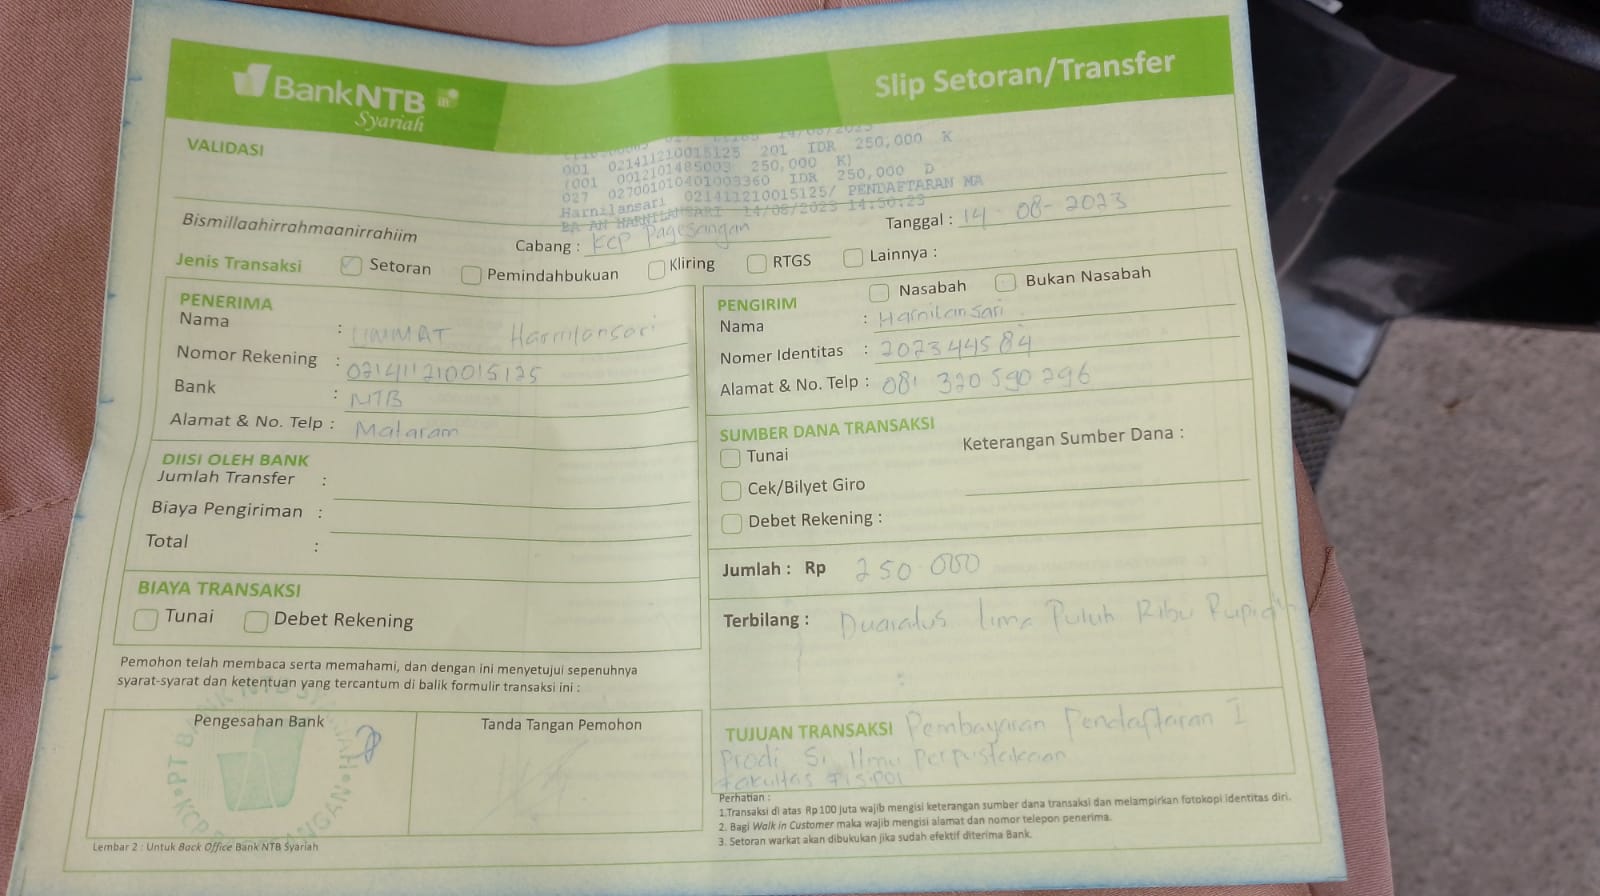 BankNTB
Syariah
Slip Setoran/Transfer
VALIDASI
14/08/2023
001 021411210015125 201 IDR 250,000 K
(001 0012101485003 250,000 K)
027 027001010401003360 IDR 250,000 D
Harnilansari 021411210015125/ PENDAFTARAN MA
BA AN HARNILANSARI 14/08/2023 14:50:23
Bismillaahirrahmaanirrahiim
Cabang : KCP Pagesangan
Tanggal : 14 - 08 - 2023
Jenis Transaksi Setoran Pemindahbukuan Kliring RTGS Lainnya :
PENERIMA
Nama : UMMAT Harnilansari
Nomor Rekening : 021411210015125
Bank : NTB
Alamat & No. Telp : Mataram
PENGIRIM Nasabah Bukan Nasabah
Nama : Harnilansari
Nomer Identitas : 202344584
Alamat & No. Telp : 081 320 590 296
DIISI OLEH BANK
Jumlah Transfer :
Biaya Pengiriman :
Total :
SUMBER DANA TRANSAKSI
Tunai Keterangan Sumber Dana :
Cek/Bilyet Giro
Debet Rekening :
BIAYA TRANSAKSI
Tunai Debet Rekening
Jumlah : Rp 250.000
Terbilang : Duaratus lima Puluh Ribu Rupiah
Pemohon telah membaca serta memahami, dan dengan ini menyetujui sepenuhnya
syarat-syarat dan ketentuan yang tercantum di balik formulir transaksi ini :
Pengesahan Bank
Tanda Tangan Pemohon
TUJUAN TRANSAKSI Pembayaran Pendaftaran I
Prodi S1 Ilmu Perpustakaan
Fakultas FISIPOL
Perhatian :
1.Transaksi di atas Rp100 juta wajib mengisi keterangan sumber dana transaksi dan melampirkan fotokopi identitas diri.
2. Bagi Walk in Customer maka wajib mengisi alamat dan nomor telepon penerima.
3. Setoran warkat akan dibukukan jika sudah efektif diterima Bank.
Lembar 2 : Untuk Back Office Bank NTB Syariah